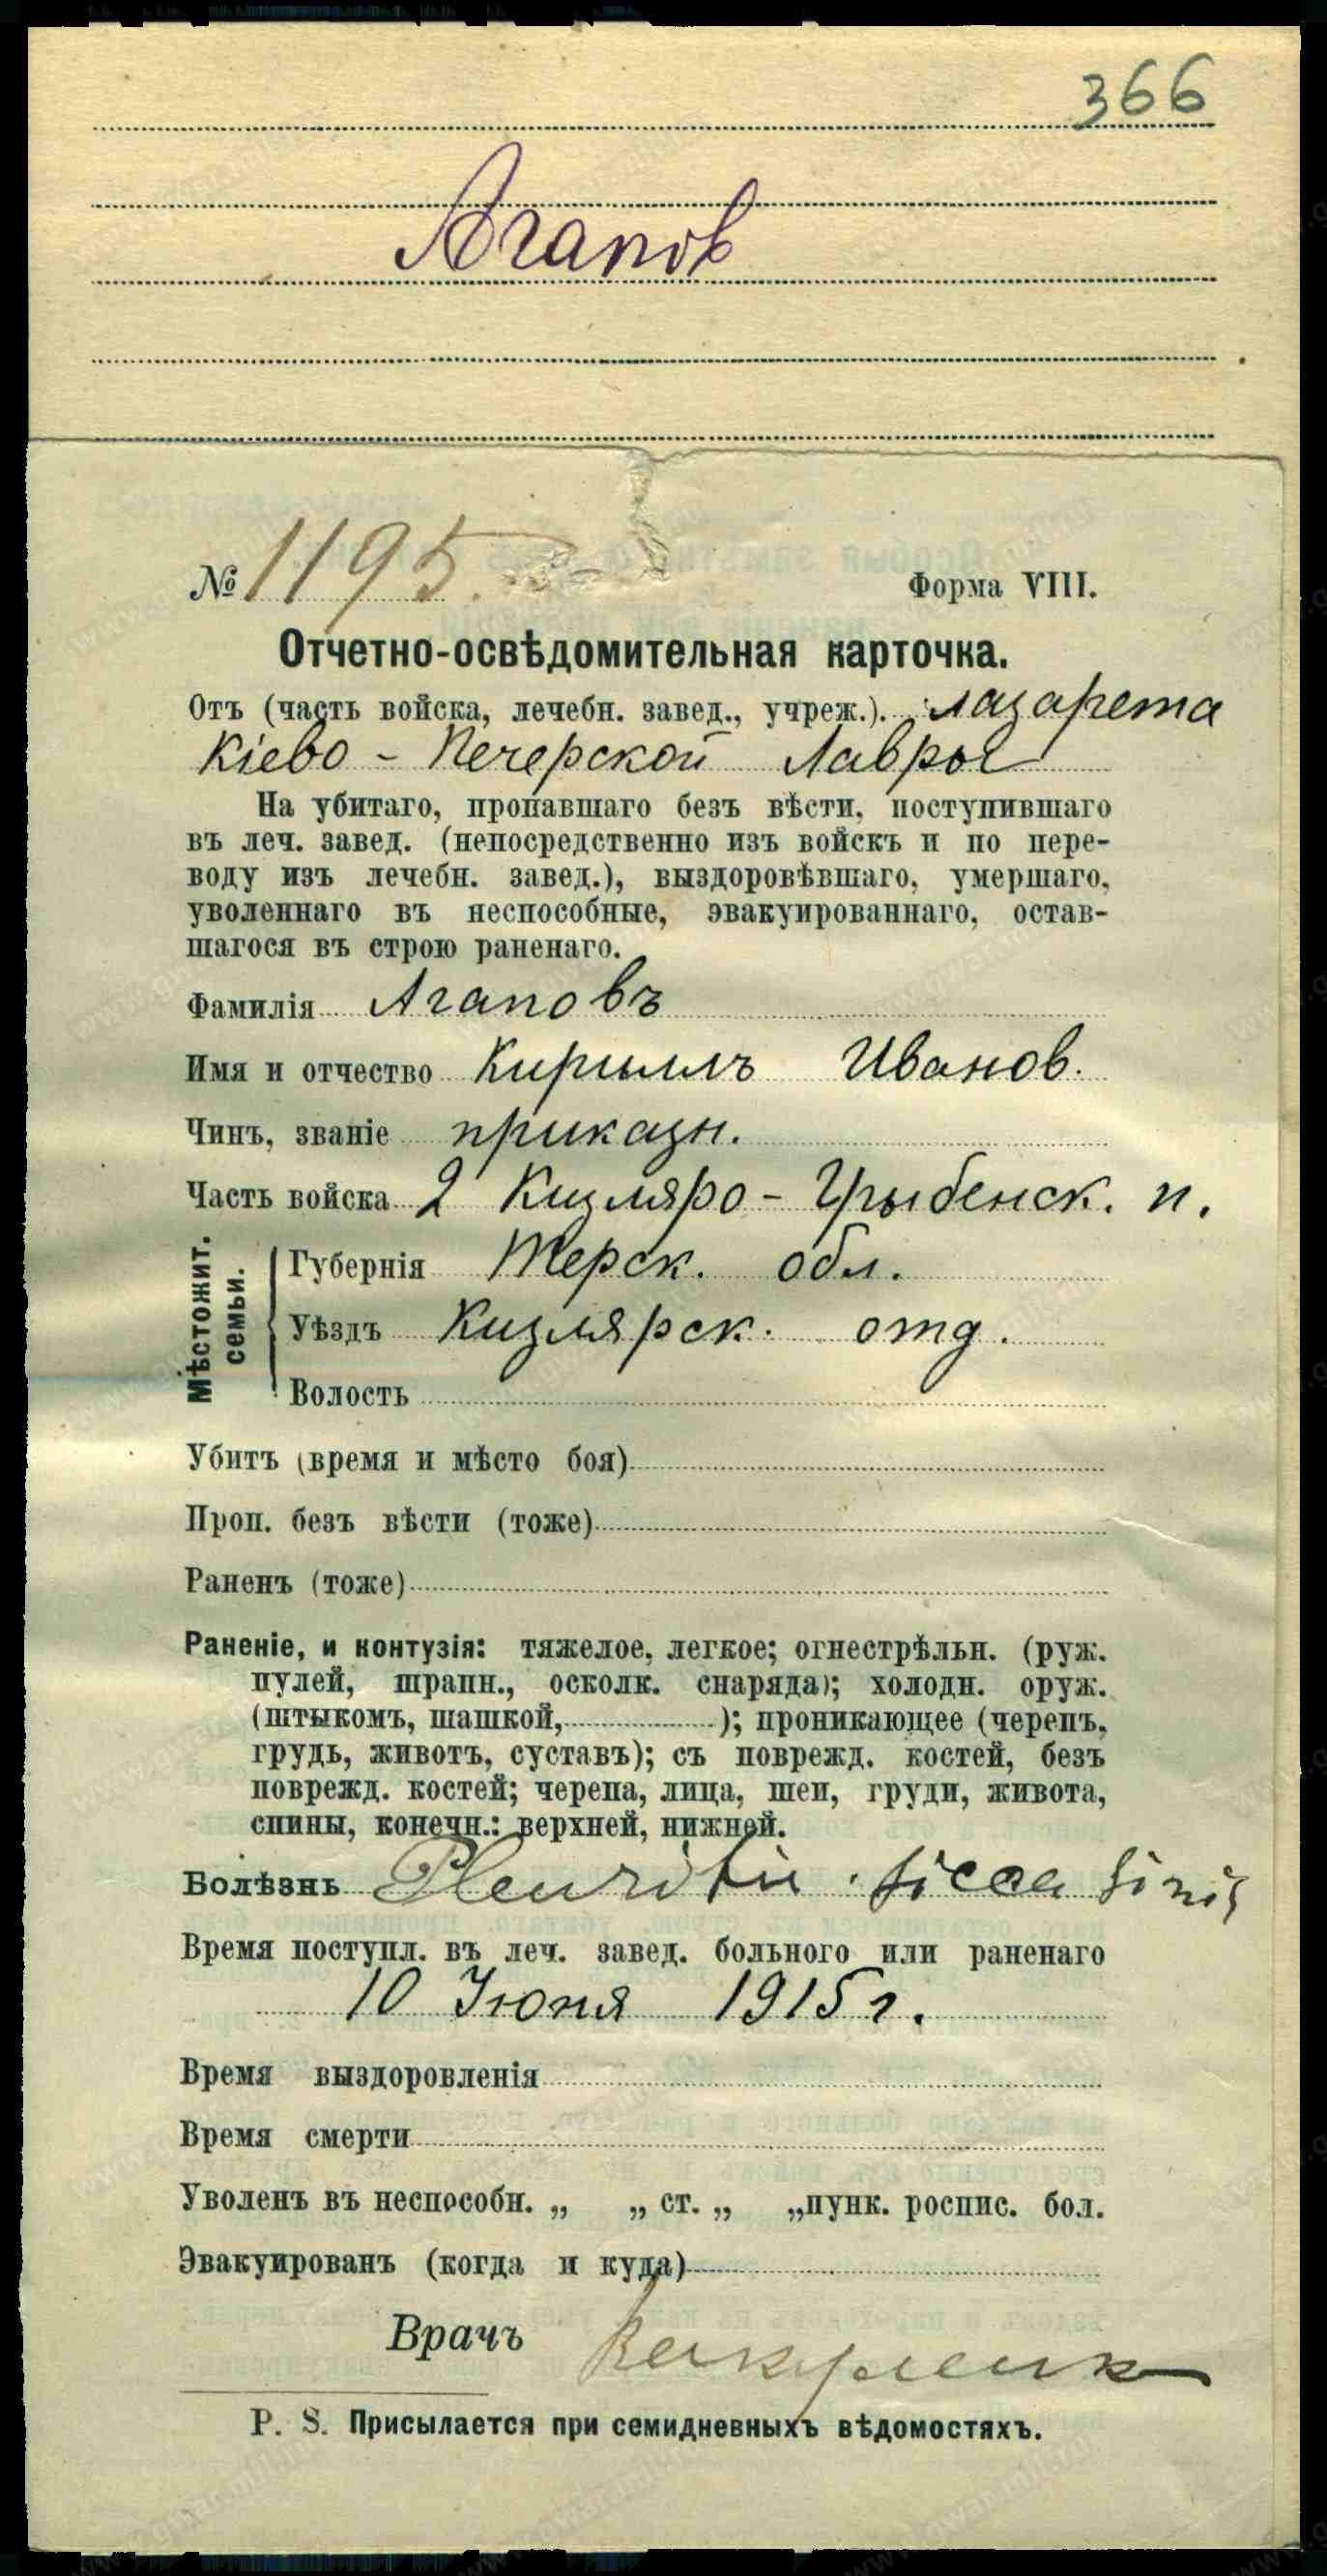 366
Агапов
№ 1195.
Форма VIII.
Отчетно-освѣдомительная карточка.
Отъ (часть войска, лечебн. завед., учреж.). лазарета
Кіево - Печерской Лавры
На убитаго, пропавшаго безъ вѣсти, поступившаго
въ леч. завед. (непосредственно изъ войскъ и по пере-
воду изъ лечебн. завед.), выздоровѣвшаго, умершаго,
уволеннаго въ неспособные, эвакуированнаго, остав-
шагося въ строю раненаго.
Фамилія Агаповъ
Имя и отчество Кириллъ Иванов.
Чинъ, званіе приказн.
Часть войска 2 Кизляро - Грыбенск. п.
Мѣстожит. семьи.
Губернія Терск. обл.
Уѣздъ Кизлярск. отд.
Волость
Убитъ (время и мѣсто боя)
Проп. безъ вѣсти (тоже)
Раненъ (тоже)
Раненіе, и контузія: тяжелое, легкое; огнестрѣльн. (руж.
пулей, шрапн., осколк. снаряда); холодн. оруж.
(штыкомъ, шашкой, ); проникающее (черепъ,
грудь, животъ, суставъ); съ поврежд. костей, безъ
поврежд. костей; черепа, лица, шеи, груди, живота,
спины, конечн.: верхней, нижней.
Болѣзнь Pleuritis sicca sinis
Время поступл. въ леч. завед. больного или раненаго
10 Іюня 1915 г.
Время выздоровленія
Время смерти
Уволенъ въ неспособн. „ „ ст. „ „ пунк. роспис. бол.
Эвакуированъ (когда и куда)
Врачъ
P. S. Присылается при семидневныхъ вѣдомостяхъ.